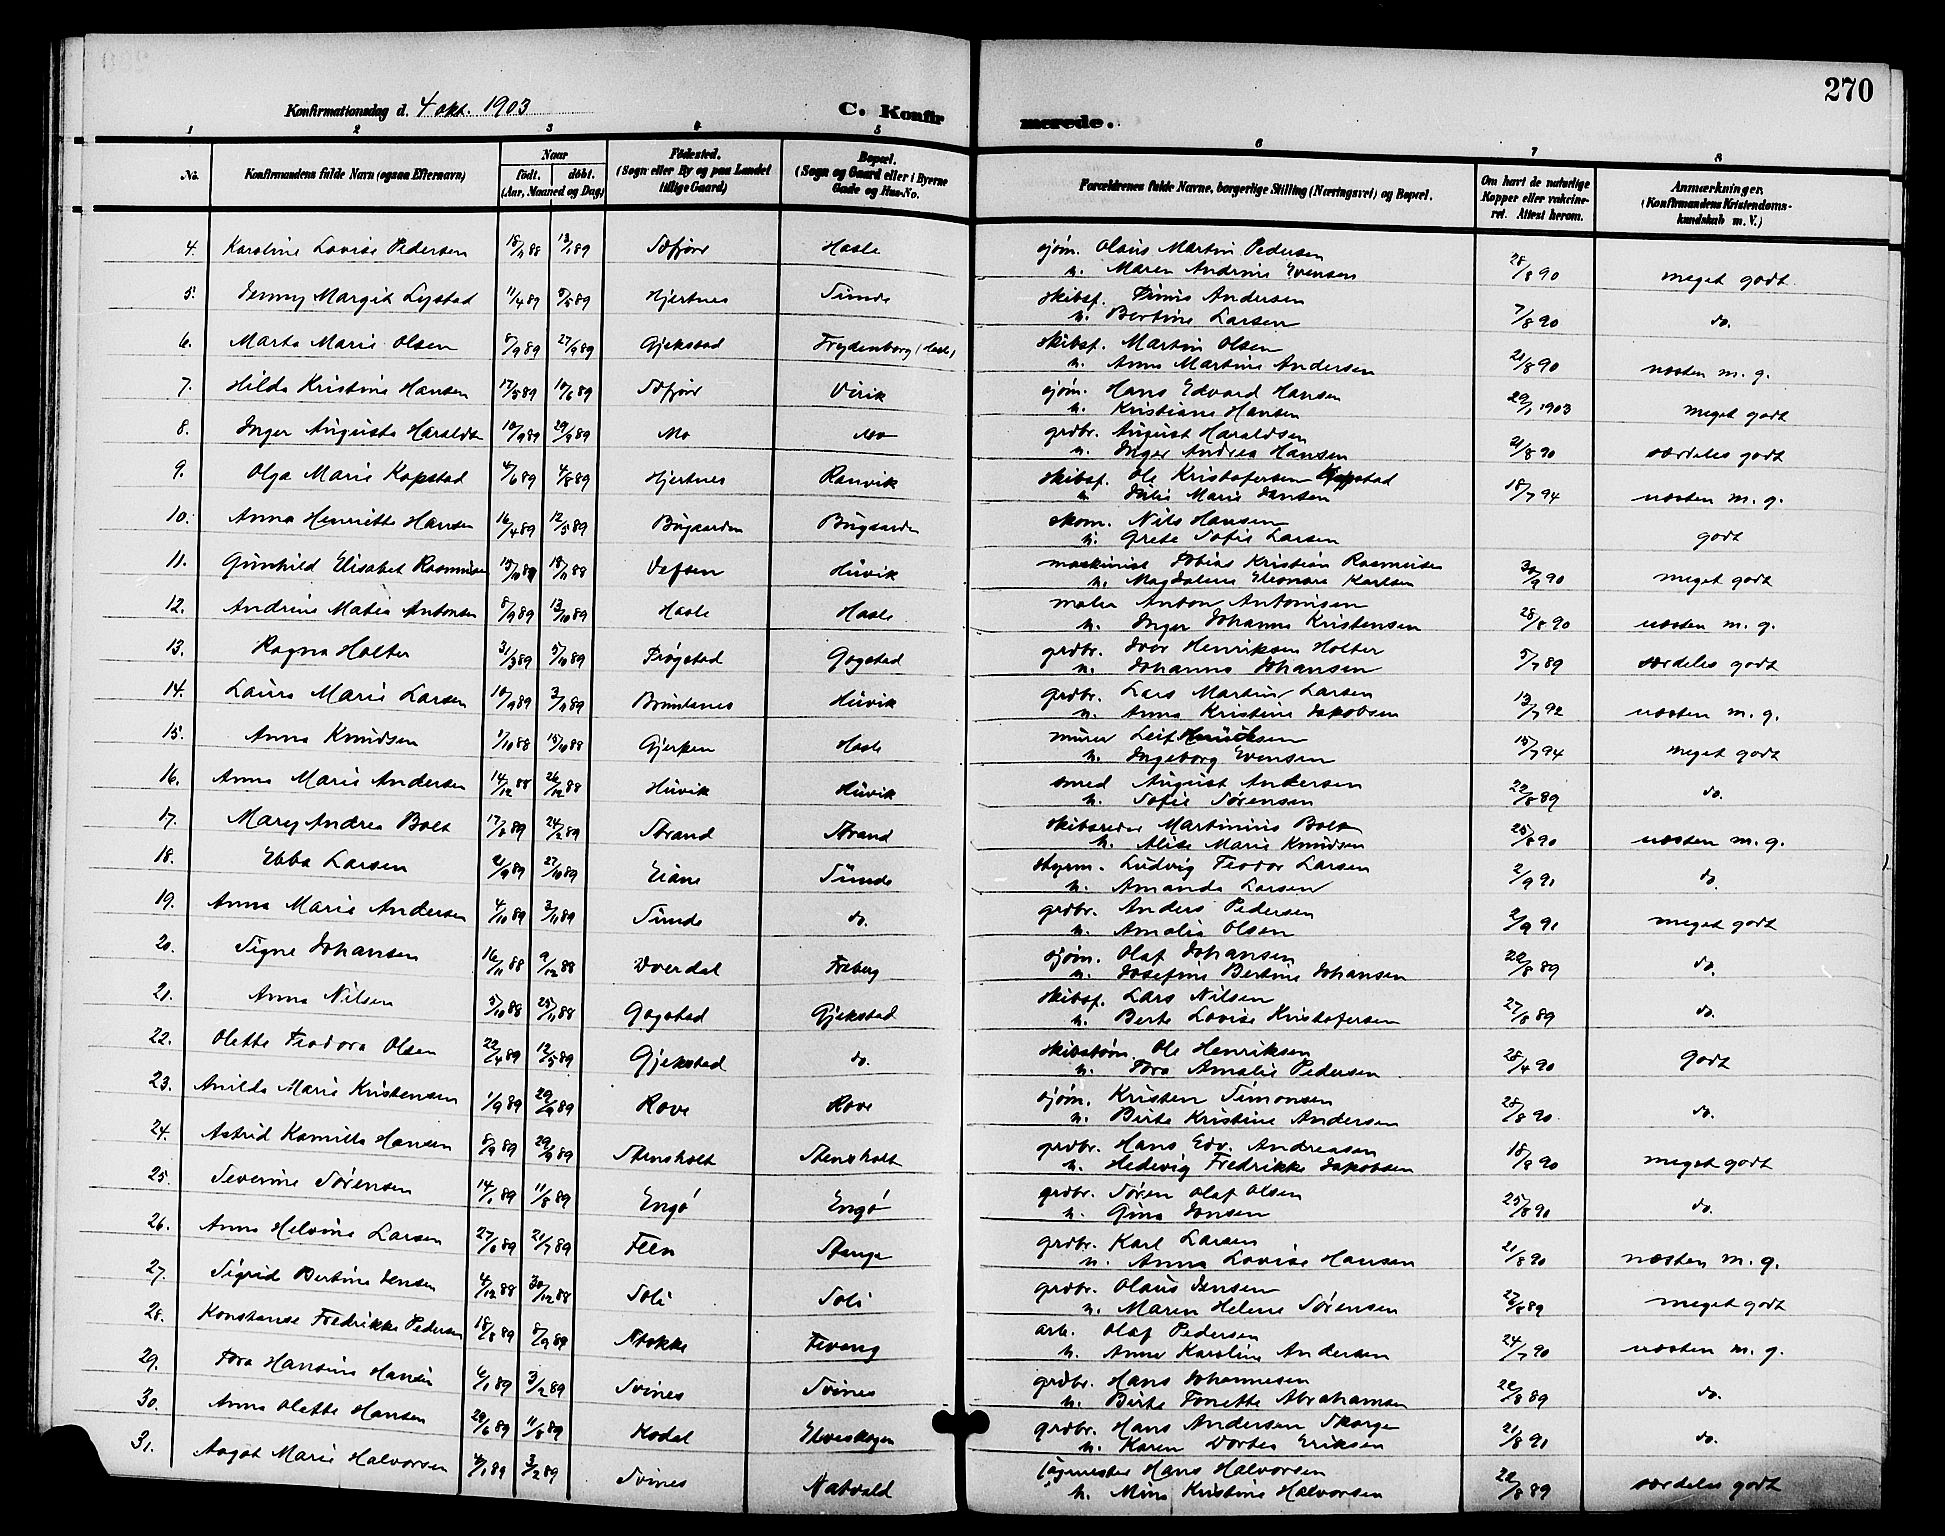 270
Konfirmationsdag d. 4 okt. 1903
C. Konfirmerede.
1 2 3 4 5 6 7 8
No. Konfirmandens fulde Navn (ogsaa Efternavn) Naar födt. döbt. (Aar, Maaned og Dag) Födested. (Sogn eller By og paa Landet tillige Gaard) Bopæl. (Sogn og Gaard eller i Byerne Gade og Hus-No. Forældrenes fulde Navne, borgerlige Stilling (Næringsvei) og Bopæl. Om havt de naturlige Kopper eller vaccineret. Attest herom. Anmærkninger. (Konfirmandens Kristendomskundskab m. V.)
4. Karoline Lovise Pedersen 18/11 88 13/1 89 Sefjør Hasle sjøm. Olaus Martin Pedersen 28/8 90 meget godt
u. Maren Andrine Evensen
5. Jenny Margit Lystad 11/4 89 5/5 89 Hjertnes Sunde skibsf. Andersen 7/8 90 do.
u. Bertine Larsen
6. Marta Marie Olsen 5/9 89 27/9 89 Gjekstad Frydenborg (Hasle) skibsf. Martin Olsen 21/8 90 næsten m. g.
u. Anna Martine Andersen
7. Hilda Kristine Hansen 17/5 89 10/6 89 Sefjør Virik sjøm. Hans Edvard Hansen 29/1 1903 meget godt
u. Kristiane Hansen
8. Inger Augusta Haralds 10/9 89 29/9 89 Mo Mo grdbr. August Haraldsen 21/8 90 særdeles godt
u. Inger Andrea Hansen
9. Olga Marie Kopstad 4/6 89 4/8 89 Hjertnes Ranvik skibsf. Ole Kristofersen Kopstad 18/7 94 næsten m. g.
u. Julie Marie Jensen
10. Anna Henriette Hansen 16/4 89 12/5 89 Bugaarden Bugaarden skom. Nils Hansen godt
u. Grete Sofie Larsen
11. Gunhild Elisabet Rasmussen 18/11 88 Vefsen Huvik maskinist Tobias Kristian Rasmussen 30/9 90 meget godt
u. Magdalena Eleonora Karlsen
12. Andrine Matea Antonsen 8/9 89 13/10 89 Hasle Hasle maler Anton Antonisen 28/8 90 næsten m. g.
u. Inger Johanne Kristensen
13. Ragna Holter 31/3 89 5/10 89 Trøgstad Gogstad grdbr. Iver Henriksen Holter 5/7 89 særdeles godt
u. Johanna Johansen
14. Laura Marie Larsen 10/9 89 3/11 89 Brunlanes Huvik grdbr. Lars Martin Larsen 13/7 92 næsten m. g.
u. Anna Kristine Jakobsen
15. Anna Knudsen 1/10 88 15/10 88 Gjerpen Hasle murer Leif 15/7 94 meget godt
u. Ingeborg Evensen
16. Anna Marie Andersen 14/12 88 26/12 88 Huvik Huvik smed August Andersen 22/8 89 do.
u. Sofie Sørensen
17. Mary Andrea Bolt 17/1 89 24/2 89 Strand Strand skibsreder Martinius Bolt 25/8 90 næsten m. g.
u. Alise Marie Knudsen
18. Ebba Larsen 21/9 89 27/10 89 Eiane Sunde styrm. Ludvig Teodor Larsen 2/9 91 do.
u. Amanda Larsen
19. Anna Marie Andersen 4/10 89 3/11 89 Sunde do. grdbr. Anders Pedersen 2/9 91 meget godt
u. Amalia Olsen
20. Signe Johansen 16/11 88 9/12 88 Overdal Freberg sjøm. Olaf Johansen 22/8 89 do.
u. Josefine Bertine Johansen
21. Anna Nilsen 5/10 88 25/11 88 Gogstad Gjekstad skibsf. Lars Nilsen 27/8 89 do.
u. Berte Lovise Kristofersen
22. Olette Teodora Olsen 22/4 89 12/5 89 Gjekstad do. skibstøm. Ole Henriksen 28/4 90 Godt
u. Tora Amalie Pedersen
23. Anilda Marie Kristensen 1/9 89 29/9 89 Rove Rove sjøm. Kristen Simonsen 28/8 90 do.
u. Birte Kristine Andersen
24. Astrid Kamilla Hansen 8/9 89 29/9 89 Stensholt Stensholt grdbr. Hans Edv. Andreasen 18/8 90 meget godt
u. Hedevig Fredrikke Jakobsen
25. Severine Sørensen 14/1 89 11/8 89 Engø Engø grdbr. Søren Olaf Olsen 25/8 90 do.
u. Gina Jensen
26. Anna Helvine Larsen 27/6 89 21/7 89 Feen Stange grdbr. Karl Larsen 21/8 90 næsten m. g.
u. Anna Lovise Hansen
27. Sigrid Bertine Jensen 4/12 88 30/12 88 Soli Soli grdbr. Olaus Jensen 27/8 89 meget godt
u. Maren Helene Sørensen
28. Konstanse Fredrikke Pedersen 18/8 89 8/9 89 Stokke Fevang arb. Olaf Pedersen 24/7 90 næsten m. g.
u. Anne Karoline Andersen
29. Tora Hansine Hansen 6/1 89 3/2 89 Svines Svines grdbr. Hans Johannesen 22/8 89 do.
u. Birte Tonette Abrahamsen
30. Anna Olette Hansen 29/6 89 11/8 89 Kodal Elveskogen grdbr. Hans Andersen Skorge 21/8 91 do.
u. Karen Dortea Eriksen
31. Aagot Marie Halvorsen 4/1 89 3/2 89 Svines Natvald Tugmester Hans Halvorsen 22/8 89 særdeles godt
u. Mina Kristine Halvorsen